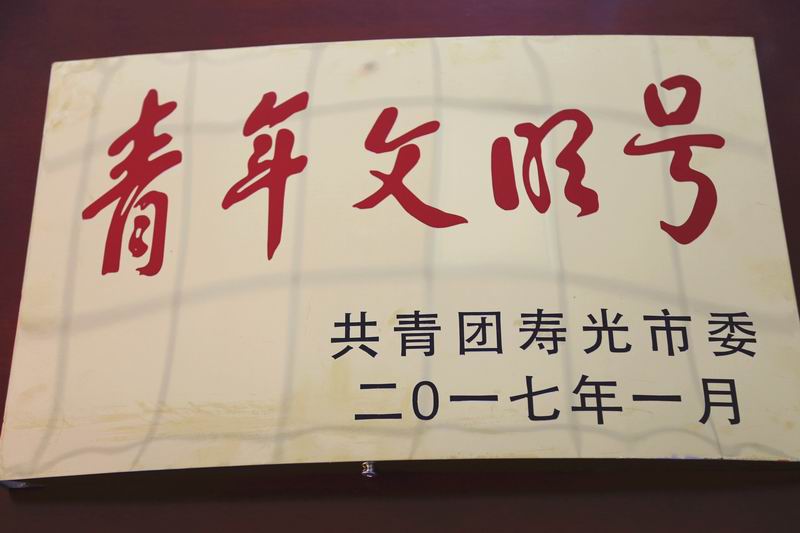 青年文明号
共青团寿光市委
二0一七年一月